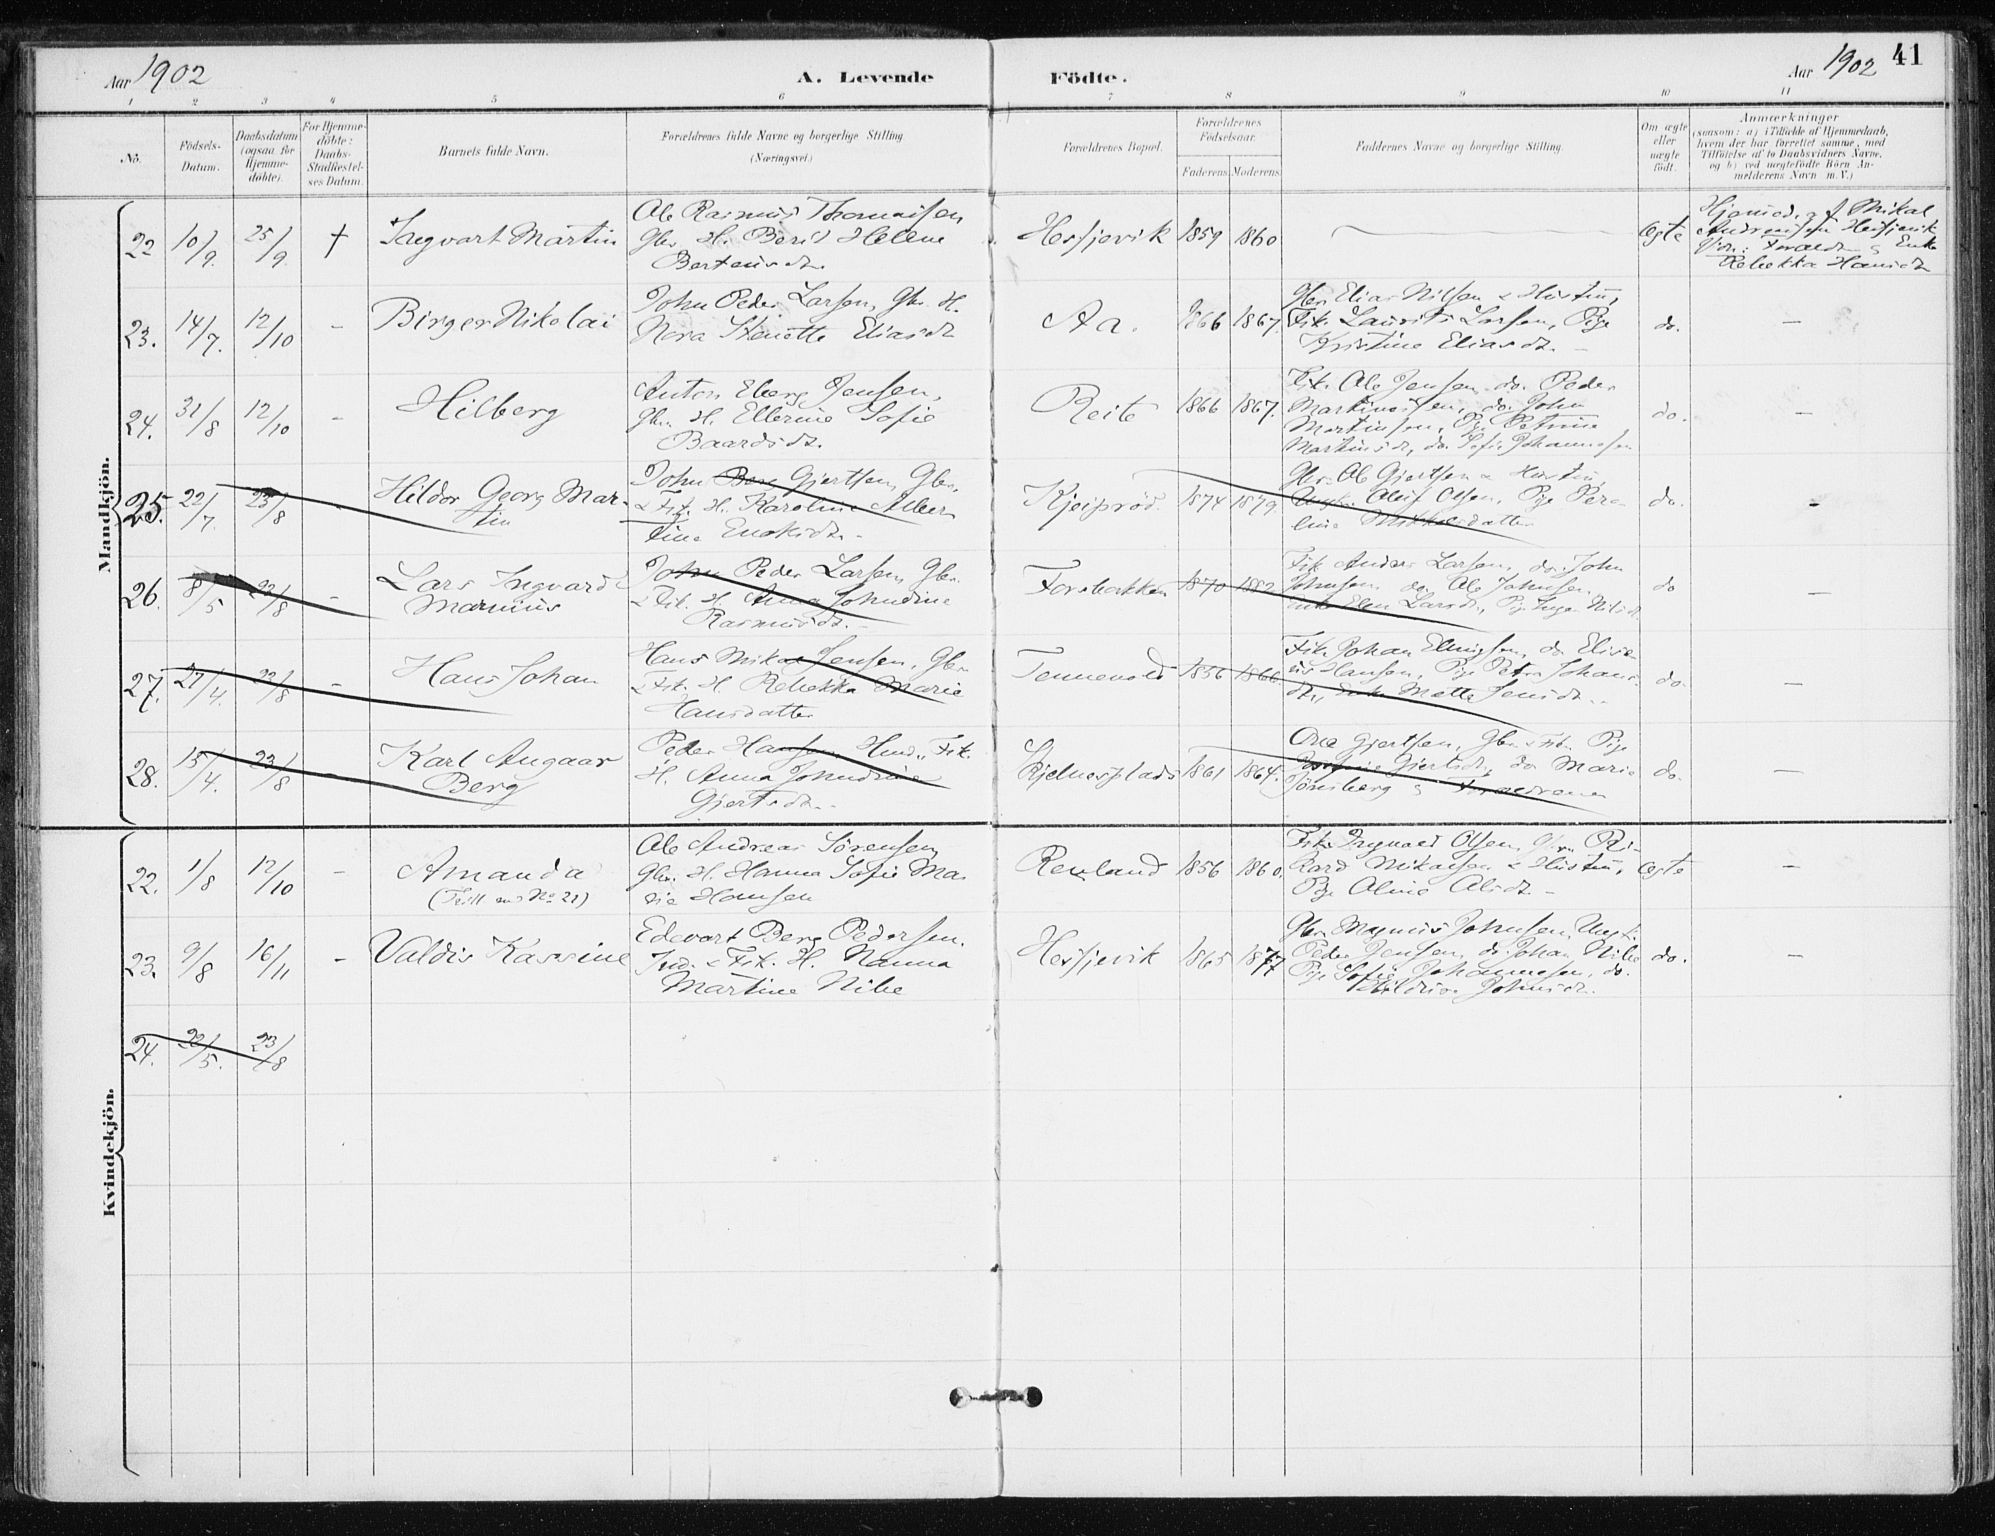 Aar 1902
A. Levende
Födte.
Aar 1902
41
1 2 3 4 5 6 7 8 9 10 11
No.
Födsels-
Datum.
Daabsdatum
(ogsaa for
Hjemme-
döbte).
For Hjemme-
döbte:
Daabs-
Stadfæstel-
ses Datum.
Barnets fulde Navn.
Forældrenes fulde Navne og borgerlige Stilling
(Næringsvei.)
Forældrenes Bopæl.
Forældrenes
Födselsaar.
Faderens
Moderens
Faddernes Navne og borgerlige Stilling.
Om ægte
eller
uægte
födt.
Anmærkninger
(saasom: a) i Tilfælde af Hjemmedaab,
hvem der har forrettet samme, med
Tilföielse af to Daabsvidners Navne,
og b) ved uægtefödte Börn An-
melderens Navn m.V.)
Mandkjön.
22
10/9.
25/9.
†
Ingvart Martin
Ole Rasmus Thomassen
Gbr. H. Berit Helene
Berteusdr.
Hessjevik
1859
1860
Ægte
Hjemmed. af Mikal
Andreassen Hessjevik
Forældr. & Enke
Rebekka Hansdr
23.
14/7.
12/10
-
Birger Nikolai
John Peder Larsen, Gbr. H.
Nora Eliasdr
Aa.
1866
1867.
Gbr. Elias Nilsen & Hustru,
Fisk. Laurits Larsen, Pige
Kristine Eliasdr. -
do.
-
24.
31/8
12/10
-
Hilberg
Anton Eberg Jensen,
Gbr. H. Ellerine Sofie
Baardsdr.
Reite
1866
1867.
Fisk. Ole Jensen do. Peder
Martinussen, do. John
Martinsen, Pige Petrine
Martinsdr, do. Sofie Johannesen
do.
-
25.
22/7.
23/8
Hildor Georg Mar-
tin
John Berg Gjertsen, Gbr.
& Fisk. H. Karoline Alber
tine Enoksdr. -
Kjeiprød.
1874
1879
Gbr. Ole Gjertsen & Hustru,
Olsen, Pige Pera-
line Mikkelsdatter
do.
-
26.
8/5
22/8
-
Lars Ingvard
Marinius
John Peder Larsen, Gbr.
& Fisk. H. Anna Johndine
Rasmusdr. -
Forsbakken
1870
1882
Fisk Anders Larsen, do. John
Johnsen do. Ole Johnsen
Enke Elen Larsdr., Pige Inger Nilsdr
do
-
27.
27/4.
22/8
-
Hans Johan
Hans Mikal Jensen, Gbr.
& Fisk. H Rebekka Marie
Hansdatter
Tennevold
1856
1866
Fisk Johan Ellingsen, do Elise-
us Hansen, Pige Petra Johans-
dr., Enke Mette Jensdr.
do.
-
28.
15/4.
23/8
-
Karl Angaar
Berg
Peder Hansen, Husm., Fisk.
H. Anna Johndine
Gjertsdr. -
Kjelnesplads
1861
1864.
Ove Gjertsen, Gbr. & Fisk. Pige
Gjertsdr., do Marie
Jönsberg & Forældrene
do.
-
Kvindekjön.
22.
1/8
12/10
-
Amanda
(Tvill. m. No 21)
Ole Andreas Sörensen,
Gbr. H. Hanna Sofie Ma
rie Hansen
Renland
1856
1860.
Fisk. Ingvald Olsen, Gbr. Ri-
kard Mikalsen & Hustru,
Pige Oline Olsdr. -
Ægte
-
23.
9/8
16/11
-
Valdis Kassine
Edevart Berg Pedersen.
Ind. & Fisk. H. Nanna
Martine Nibe
Hessjevik
1865
1877
Gbr. Magnus Johnsen, Ungk.
Peder Jensen, do. Johan Nibe
Pige Sofie Johannesen, do.
Hildine Johnsdr.
do.
-
24.
22/5.
23/8